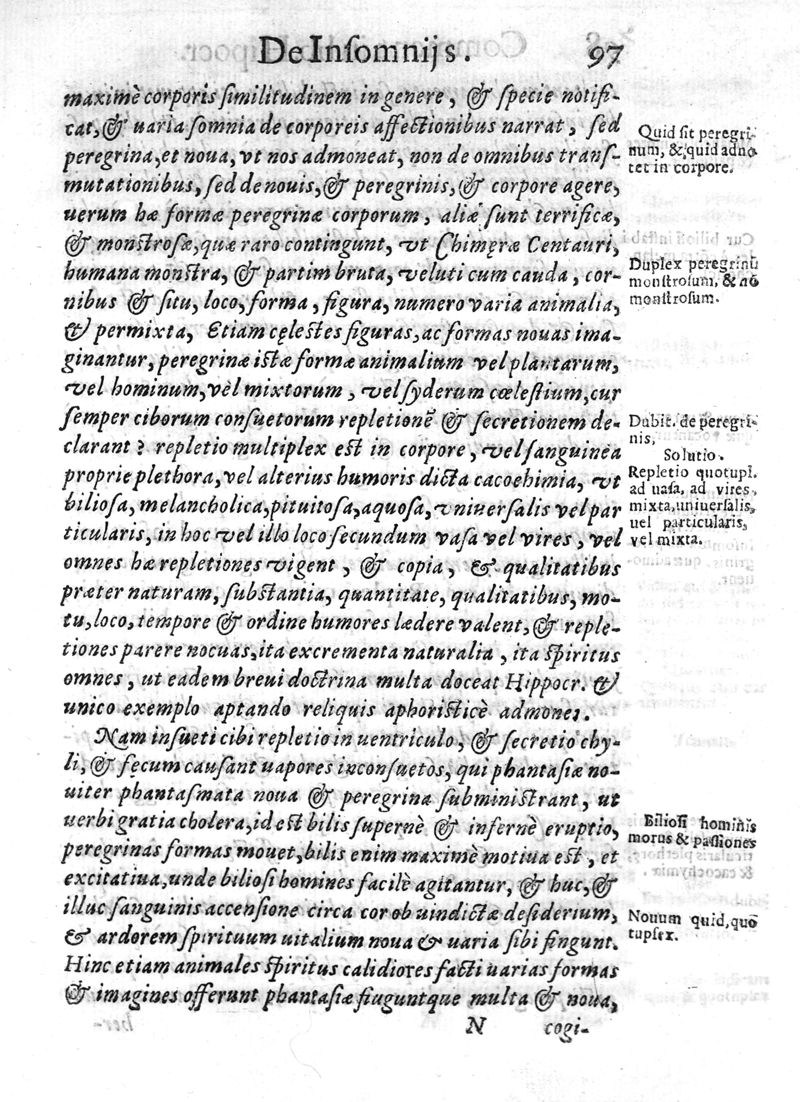 De Insomnijs. 97
maximè corporis similitudinem in genere, & specie notifi-
cat, & uaria somnia de corporeis affectionibus narrat, sed
peregrina, et noua, vt nos admoneat, non de omnibus trans-
mutationibus, sed de nouis, & peregrinis, & corpore agere,
uerum hæ formæ peregrinæ corporum, aliæ sunt terrificæ,
& monstrosæ, quæ raro contingunt, vt Chimęræ Centauri,
humana monstra, & partim bruta, veluti cum cauda, cor-
nibus & situ, loco, forma, figura, numero varia animalia,
& permixta, Etiam cęlestes figuras, ac formas nouas ima-
ginantur, peregrinæ istæ formæ animalium vel plantarum,
vel hominum, vèl mixtorum, vel syderum cœlestium, cur
semper ciborum consuetorum repletionẽ & secretionem de-
clarant? repletio multiplex est in corpore, vel sanguinea
proprie plethora, vel alterius humoris dicta cacoehimia, vt
biliosa, melancholica, pituitosa, aquosa, vniuersalis vel par
ticularis, in hoc vel illo loco secundum vasa vel vires, vel
omnes hæ repletiones vigent, & copia, & qualitatibus
præter naturam, substantia, quantitate, qualitatibus, mo-
tu, loco, tempore & ordine humores lædere valent, & reple-
tiones parere nocuas, ita excrementa naturalia, ita spiritus
omnes, ut eadem breui doctrina multa doceat Hippocr. &
unico exemplo aptando reliquis aphoristicè admonet.
Nam insueti cibi repletio in uentriculo, & secretio chy-
li, & secum causant uapores inconsuetos, qui phantasiæ no-
uiter phantasmata noua & peregrina subministrant, ut
uerbi gratia cholera, id est bilis supernè & infernè eruptio,
peregrinas formas mouet, bilis enim maximè motiua est, et
excitatiua, unde biliosi homines facilè agitantur, & huc, &
illuc sanguinis accensione circa cor ob uindictæ desiderium,
& ardorem spirituum uitalium noua & uaria sibi fingunt.
Hinc etiam animales spiritus calidiores facti uarias formas
& imagines offerunt phantasiæ fiuguntque multa & noua,
N cogi-
Quid sit peregri-
num, & quid adno
tet in corpore.
Duplex peregrinũ
monstrosum, & nõ
monstrosum.
Dubit. de peregri-
nis,
Solutio.
Repletio quotupl.
ad uasa, ad vires,
mixta, uniuersalis,
uel particularis,
vel mixta.
Biliosi hominis
morus & passiones
Nouum quid, quo
tupsex.